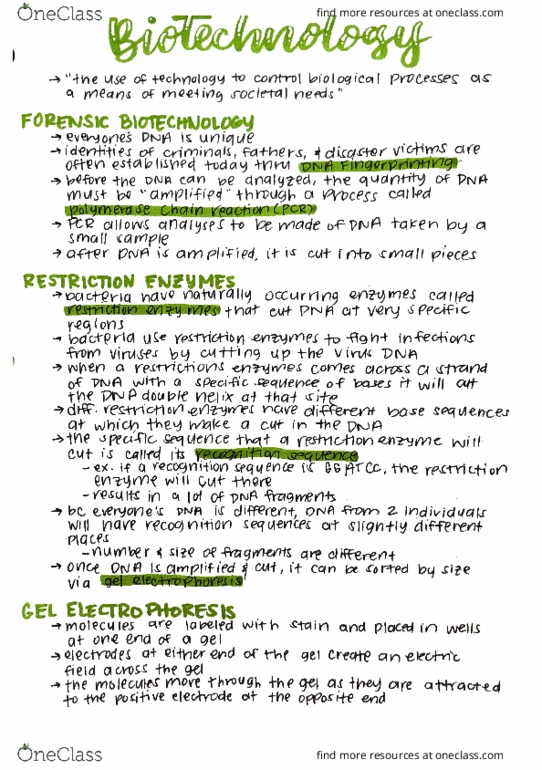 OneClass
find more resources at oneclass.com
Biotechnology
→ "the use of technology to control biological processes as
a means of meeting societal needs"
FORENSIC BIOTECHNOLOGY
→ everyone's DNA is unique
→ identities of criminals, fathers, & disaster victims are
often established today thru DNA Fingerprinting
→ before the DNA can be analyzed, the quantity of DNA
must be "amplified" through a process called
polymerase chain reaction (PCR)
→ PCR allows analyses to be made of DNA taken by a
small sample
→ after DNA is amplified, it is cut into small pieces
RESTRICTION ENZYMES
→ bacteria have naturally occurring enzymes called
restriction enzymes that cut DNA at very specific
regions
→ bacteria use restriction enzymes to fight infections
from viruses by cutting up the virus DNA
→ when a restrictions enzymes comes across a strand
of DNA with a specific sequence of bases it will cut
the DNA double helix at that site
→ diff. restriction enzymes have different base sequences
at which they make a cut in the DNA
→ the specific sequence that a restriction enzyme will
cut is called its recognition sequence
- ex. if a recognition sequence is GGATCC, the restriction
enzyme will cut there
- results in a lot of DNA fragments
→ bc everyone's DNA is different, DNA from 2 individuals
will have recognition sequences at slightly different
places
- number & size of fragments are different
→ once DNA is amplified & cut, it can be sorted by size
via gel electrophoresis
GEL ELECTROPHORESIS
→ molecules are labeled with stain and placed in wells
at one end of a gel
→ electrodes at either end of the gel create an electric
field across the gel
→ the molecules move through the gel as they are attracted
to the positive electrode at the opposite end
OneClass
find more resources at oneclass.com